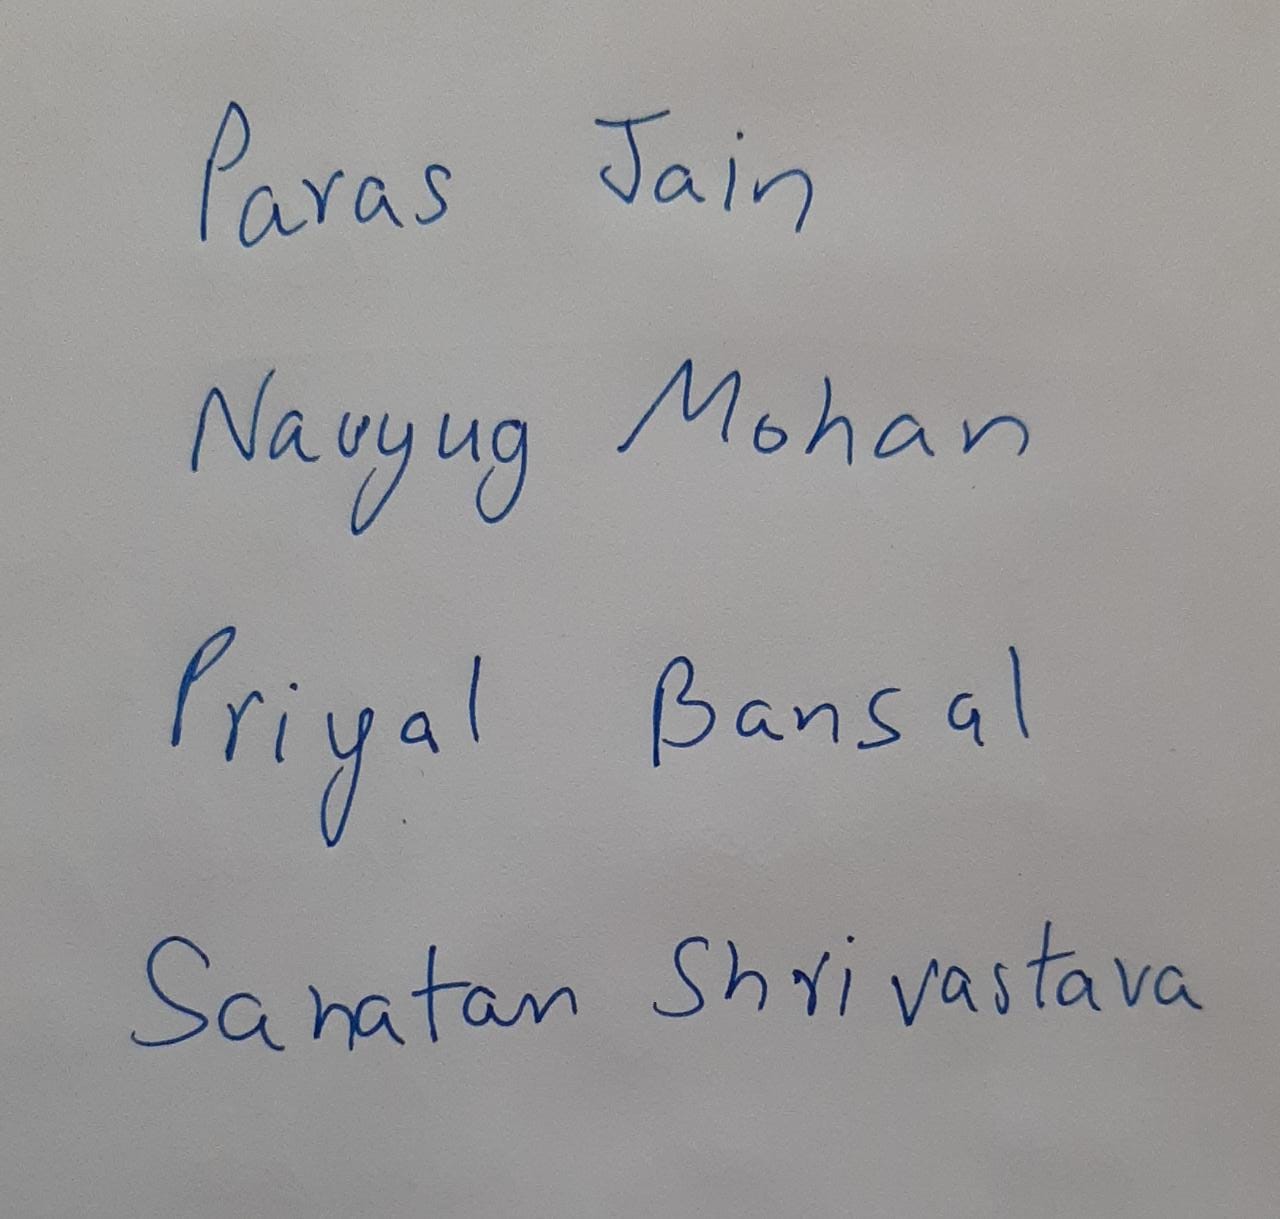 Paras Jain
Navyug Mohan
Priyal Bansal
Sanatan Shrivastava